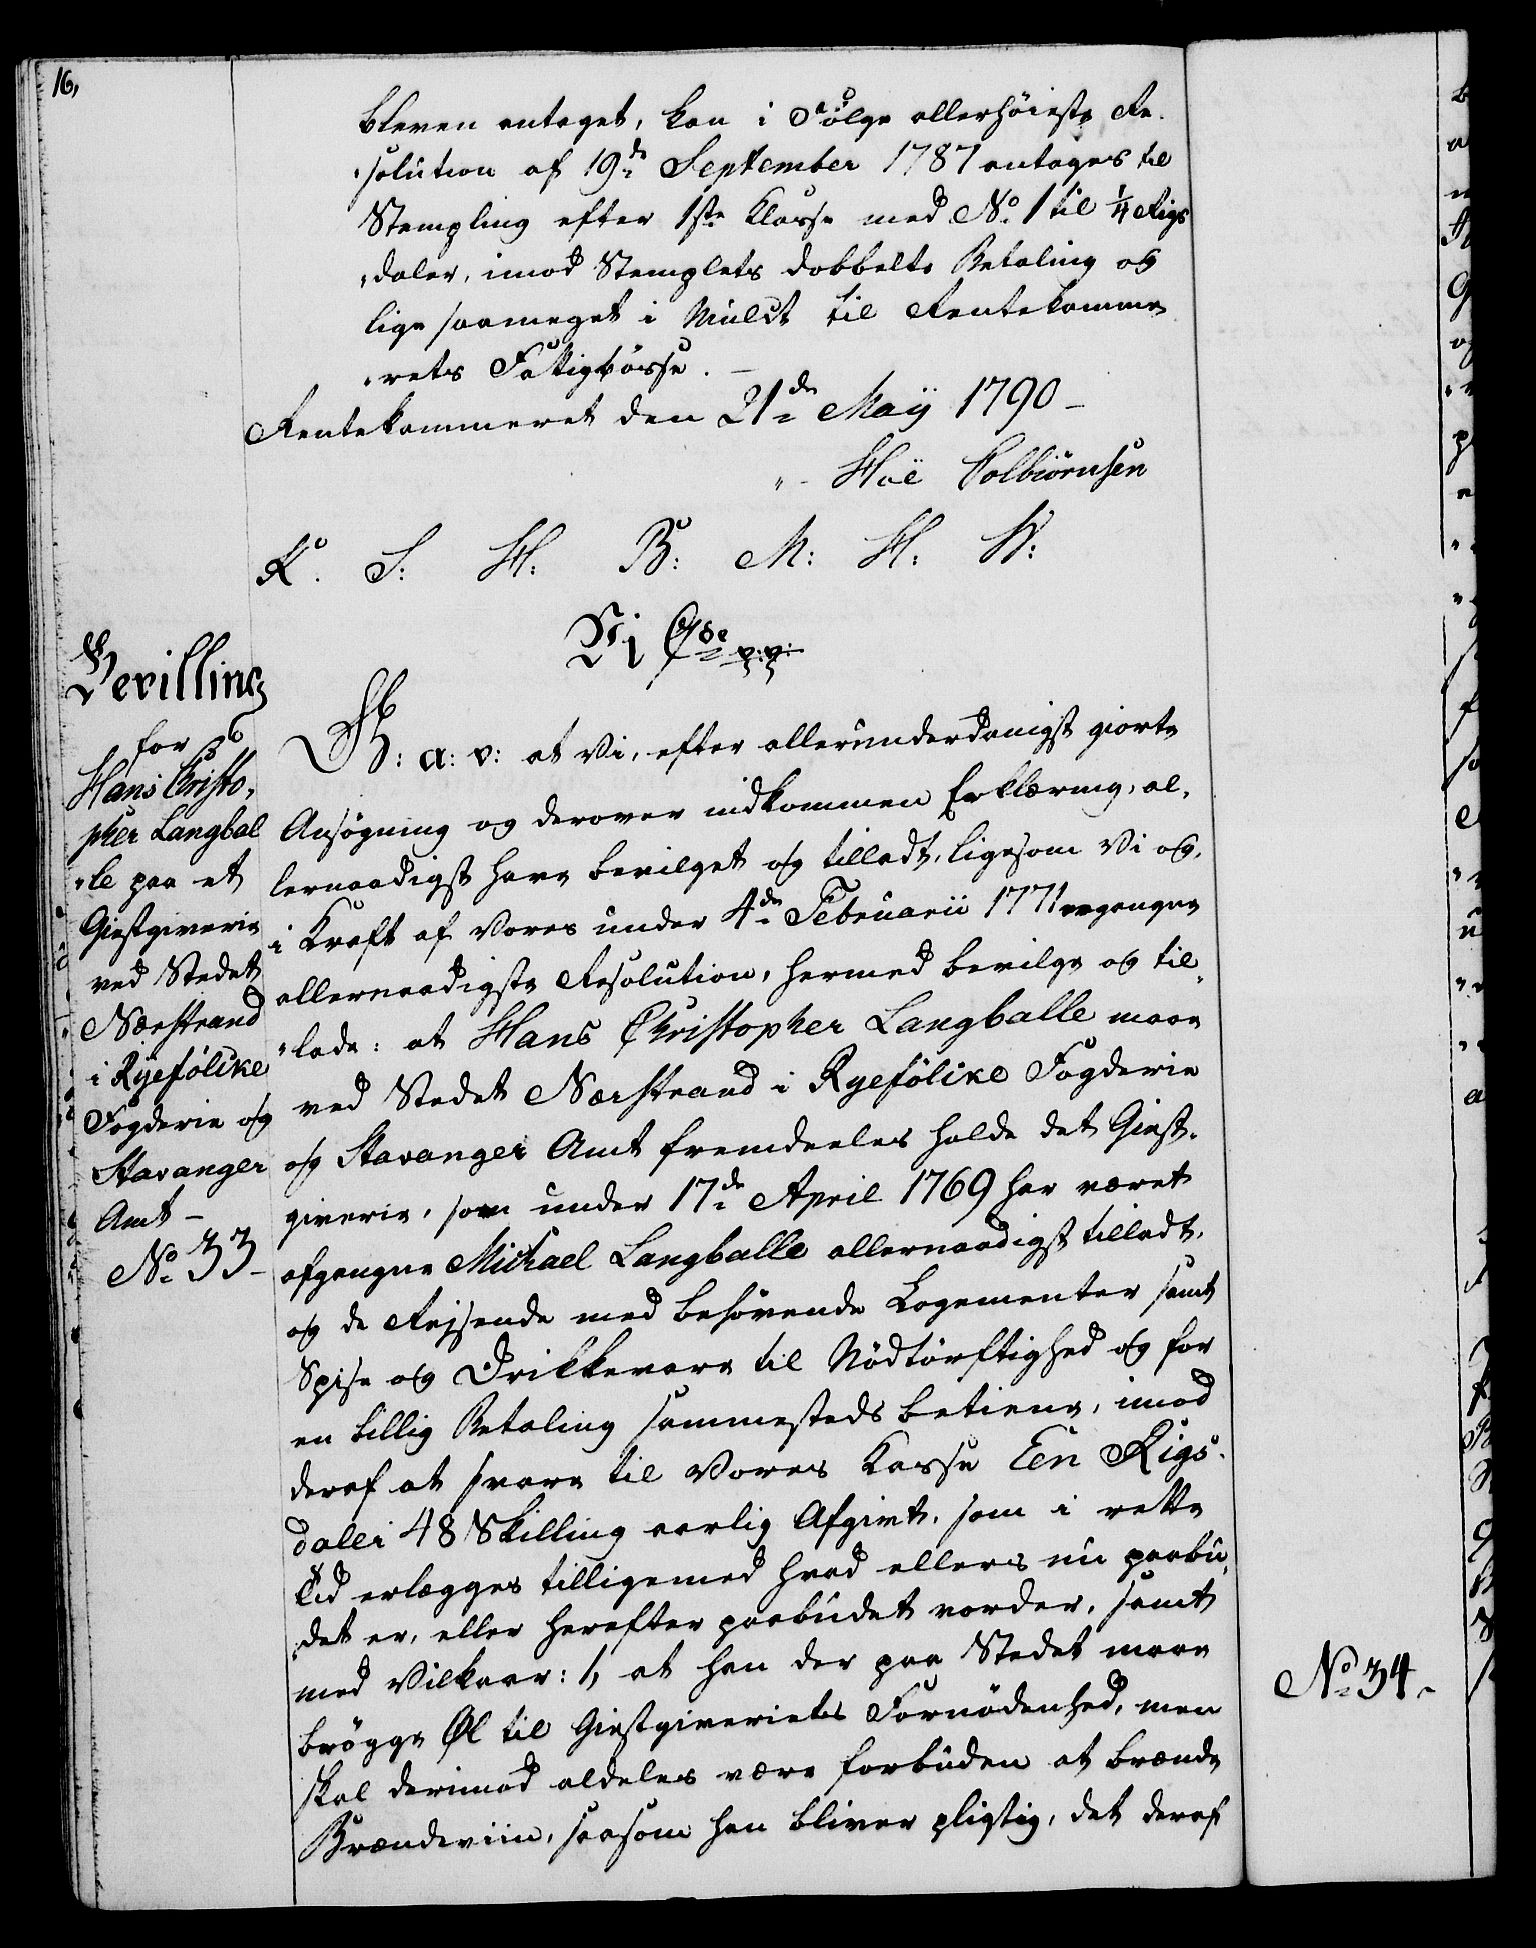 16,
bleven antaget, kan i Følge allerhøieste Re-
solution af 19de September 1787 antages til
Stempling efter 1ste Klasse med No 1 til 1/4 Rigs
daler, imod Stemplets dobbelte Betaling og
lige saameget i Mulct til Rentekamme
rets Fattigbøsse. –
Rentekammeret den 21de Maÿ 1790 –
Hoë Colbiörnsen
K. S: H: B: M: H: W:
Vi C7de p:p:
Bevilling
for
Hans Christo,
pher Langbal
le paa et
Giestgiverie
ved Stedet
Nærstrand
i Ryefölke
Fogderie og
Stavanger
Amt –
No 33 –
G: a: v: at Vi, efter allerunderdanigst giorte
Ansøgning og derover indkommen Erklæring, al,
lernaadigst have bevilget og tilladt, ligesom Vi og,
i Kraft af Vores under 4de Februarii 1771 ergangne
allernaadigste Resolution, hermed bevilge og til,
lade: at Hans Christopher Langballe maae
ved Stedet Nærstrand i Ryefölke Fogderie
og Stavanger Amt fremdeeles holde det Giest-
giverie, som under 17de April 1769 har været
afgangne Michael Langballe allernaadigst tilladt,
og de Rejsende med behøvende Logementer samt
Spise og Drikkevare til Nødtørftighed og for
en billig Betaling sammesteds betiene, imod
deraf at svare til Vores Kasse Een Rigs-
daler 48 Skilling aarlig Afgivt, som i rette
Tid erlægges tilligemed hvad ellers nu paabu,
det er, eller herefter paabudet vorder, samt
med Vilkaar: 1, at han der paa Stedet maae
brøgge Øl til Giestgiveriets Fornødenhed, men
skal derimod aldeles være forbuden at brænde
Brændeviin, saasom han bliver pligtig, det deraf
No 34 –